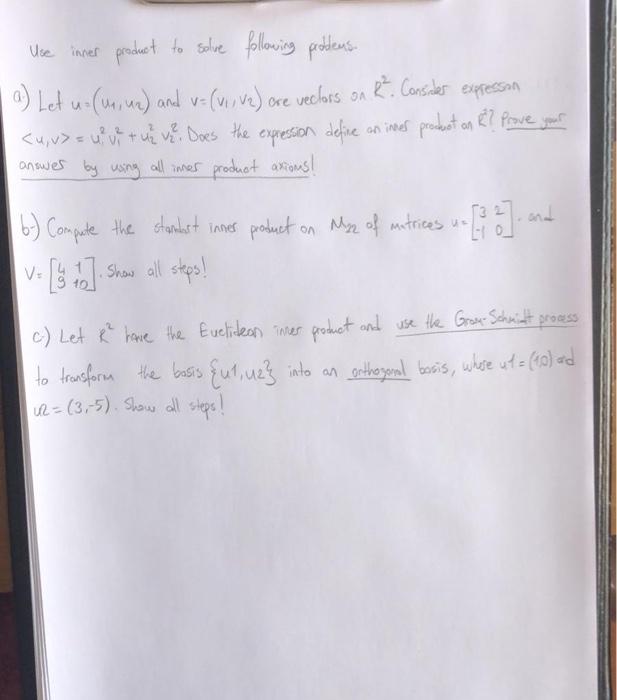 Use inner product to solve following problems.
a-) Let u=(u₁,u₂) and v=(v₁,v₂) are vectors on R². Consider expression
<u,v> = u₁²v₁² + u₂²v₂². Does the expression define an inner product on R²? Prove your
answer by using all inner product axioms!
b-) Compute the standart inner product on M₂₂ of matrices u= [3 2; -1 0]. and
V= [4 1; 9 10]. Show all steps!
c-) Let R² have the Euclidean inner product and use the Gram-Schmidt process
to transform the basis {u1,u2} into an orthogonal basis, where u1=(1,0) and
u2=(3,-5). Show all steps!